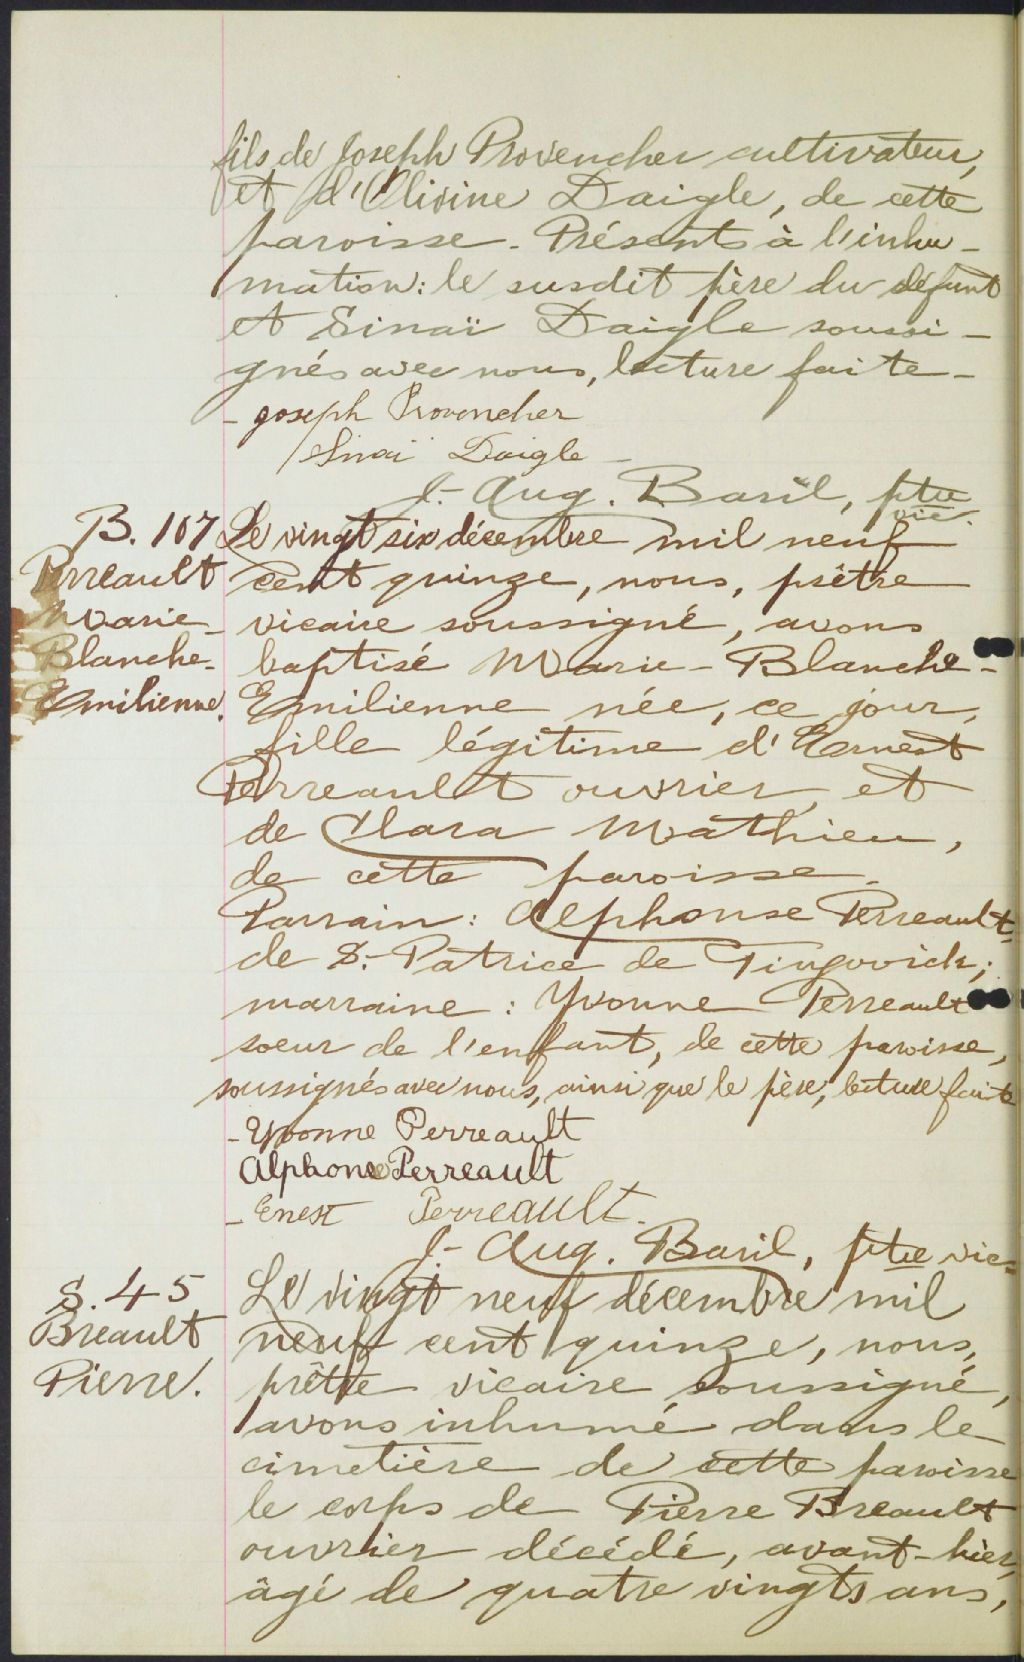 fils de Joseph Provencher cultivateur,
et d'Olivine Daigle, de cette
paroisse. Présents à l'inhu-
mation: le susdit père du défunt
et Sinaï Daigle soussi-
gnés avec nous, lecture faite-
- Joseph Provencher
Sinaï Daigle -
J.- Aug. Baril, ptre
vic.
B. 107
Perreault
Marie-
Blanche-
Emilienne.
Le vingt six décembre mil neuf
cent quinze, nous, prêtre
vicaire soussigné, avons
baptisé Marie-Blanche-
Emilienne née, ce jour,
fille légitime d'Ernest
Perreault ouvrier, et
de Clara Mathieu,
de cette paroisse.
Parrain: Alphonse Perreault,
de S.-Patrice de Tingwick;
marraine: Yvonne Perreault
soeur de l'enfant, de cette paroisse,
soussignés avec nous, ainsi que le père, lecture faite
- Yvonne Perreault
Alphonse Perreault
- Enest Perreault.
J.- Aug. Baril, ptre vic-
S. 45
Breault
Pierre.
Le vingt neuf décembre mil
neuf cent quinze, nous,
prêtre vicaire soussigné,
avons inhumé dans le
cimetière de cette paroisse
le corps de Pierre Breault
ouvrier décédé, avant-hier,
âgé de quatre vingts ans,